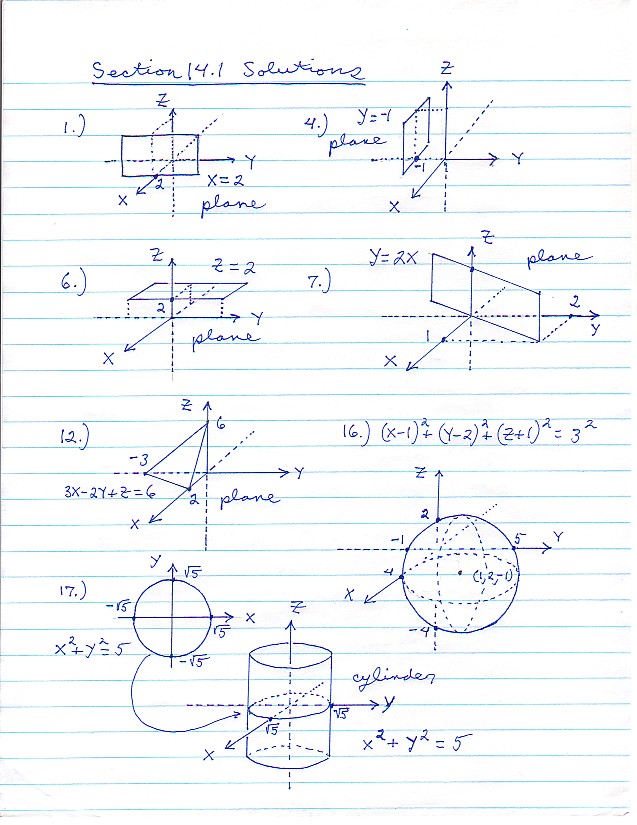 Section 14.1 Solutions
1.)
Z
Y
X
2
X=2
plane
4.)
Y=-1
plane
Z
Y
X
-1
6.)
Z
Z=2
2
Y
X
plane
7.)
Y=2X
Z
plane
2
Y
1
X
12.)
Z
6
-3
Y
3X-2Y+Z=6
2
plane
X
16.) (X-1)²+(Y-2)²+(Z+1)²=3²
Z
2
-1
5
Y
4
(1,2,-1)
X
-4
17.)
Y
√5
-√5
X
√5
x²+y²=5
-√5
Z
cylinder
Y
√5
√5
X
x²+y²=5